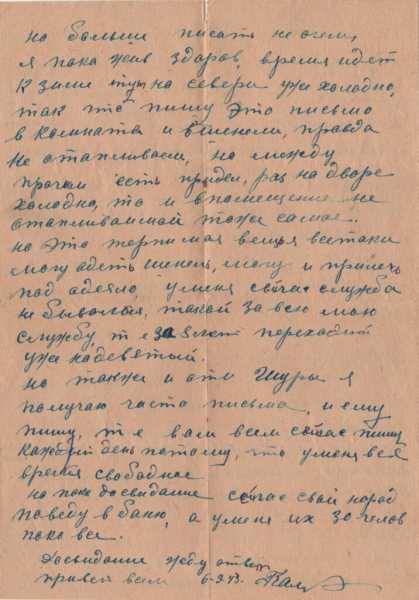 но больши писать не очем,
я пока жив здоров, время идет
к зими тут на севери уже холодно,
так что пишу это письмо
в комната и вшинели, правда
не отапливаем, но между
прочем есть предел, раз на дворе
холодно, то и впомещение не
отапливаимай тоже самое.
но это терпимая вещья всетаки
могу адеть шинель, могу и прилечь
под адеяло, уменя сейчас служба
не бывалая, такой за всю мою
службу, т е за 8 лет переходит
уже надевятый.
но также и оти Шуры я
получаю часто письма, и ему
пишу, т е вам всем сейчас пишу
каждый день потому, что уменя все
время свободное
но пока досвидание сейчас свой народ
поведу в баню, а уменя их 30 челов
пока все.
Досвидание жду ответ
привет всем 6-9.43.